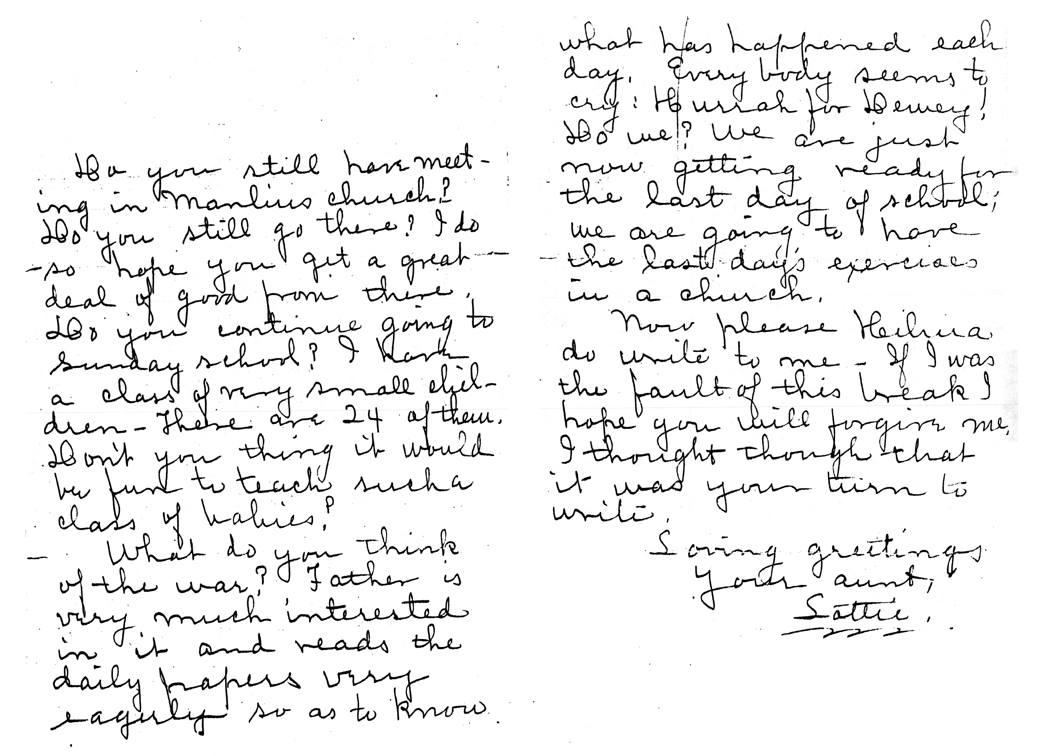 Do you still have meet-
ing in Manlius church?
Do you still go there? I do
so hope you get a great
deal of good from there.
Do you continue going to
Sunday school? I have
a class of very small chil-
dren - There are 24 of them.
Don't you thing it would
be fun to teach such a
class of babies?
What do you think
of the war? Father is
very much interested
in it and reads the
daily papers very
eagerly so as to know
what has happened each
day. Every body seems to
cry: Hurrah for Dewey!
Do we? We are just
now getting ready for
the last day of school;
we are going to have
the last day's exercises
in a church.
Now please
do write to me - If I was
the fault of this break I
hope you will forgive me,
I thought though that
it was your turn to
write.
Loving greetings
Your aunt,
Lottie.